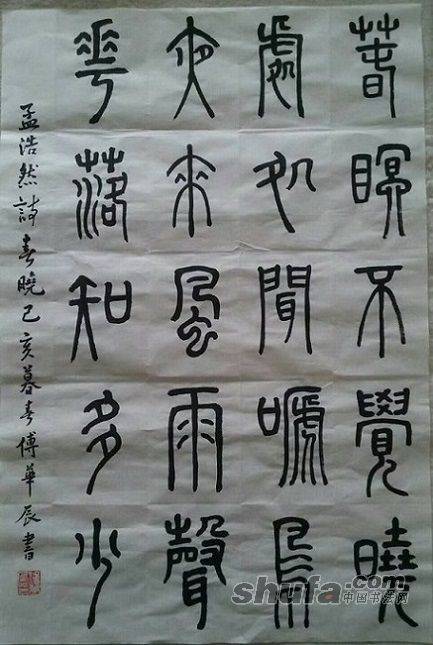 春瞑不覺曉
處処聞嗁鳥
夜來風雨聲
花落知多少
孟浩然詩春曉己亥暮春傅華辰書
shufa.com
中国书法网